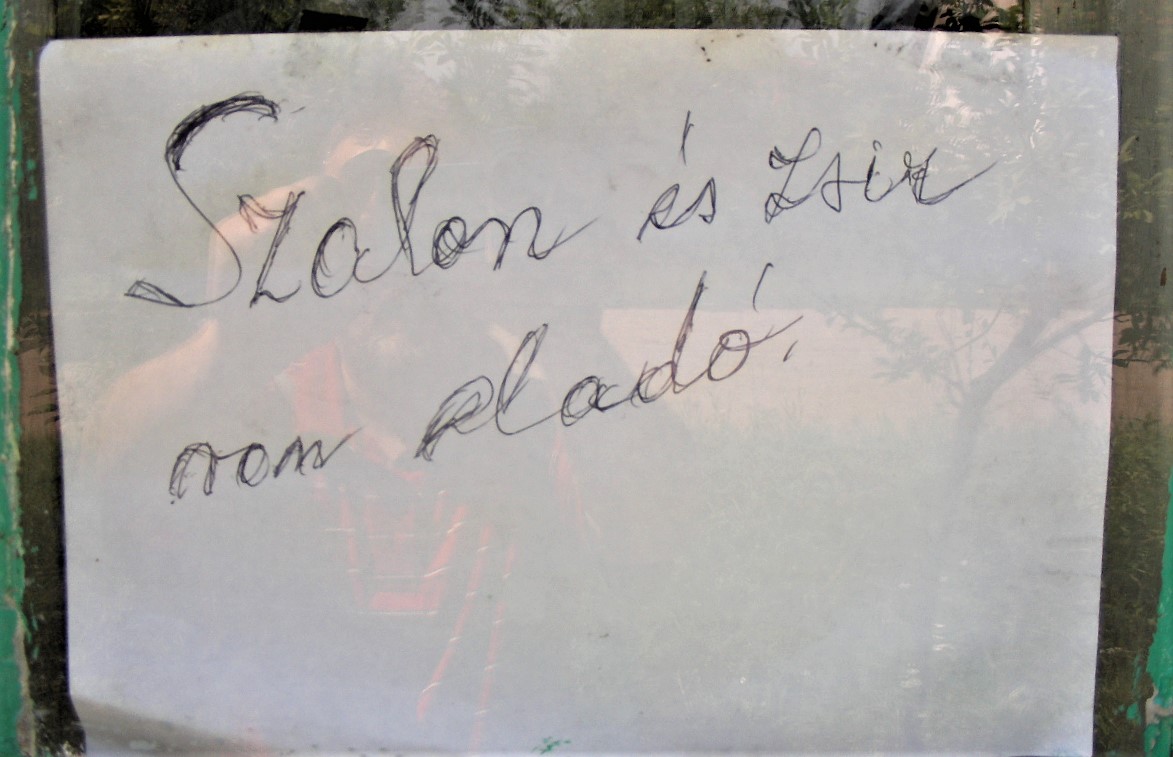 Szalon és Zsir
van eladó.